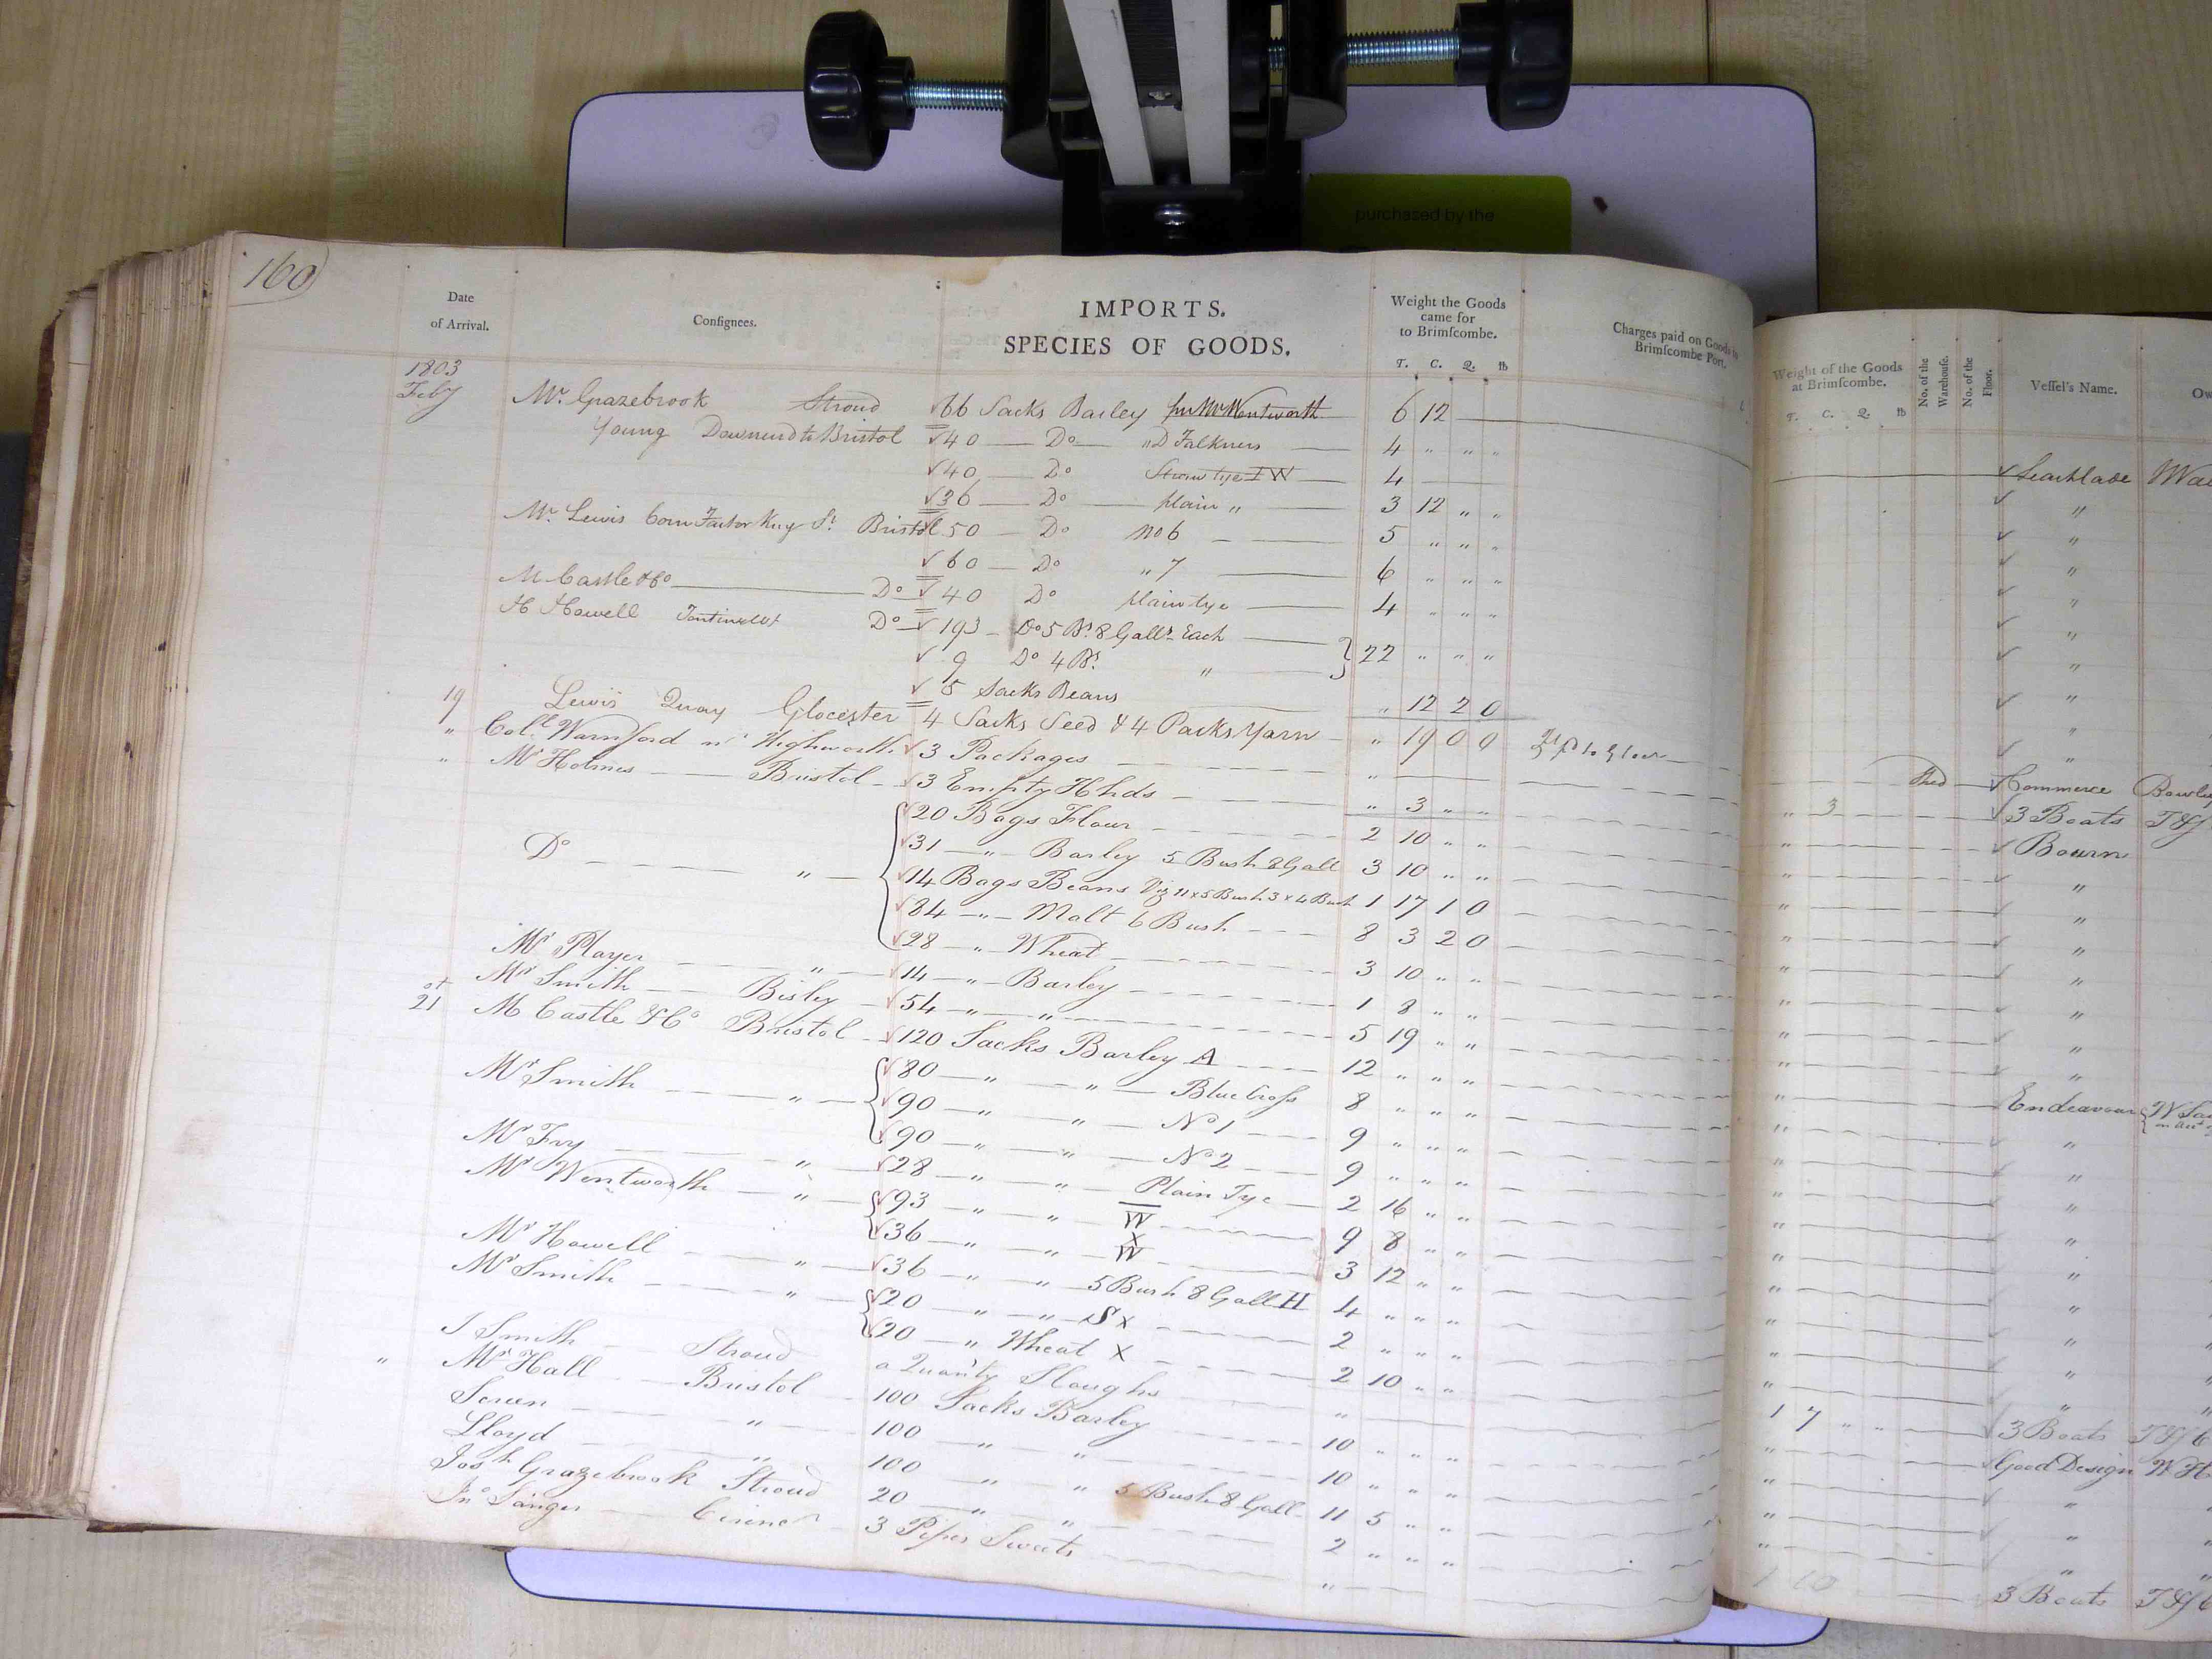 purchased by the
160
Date of Arrival. Consignees. IMPORTS. SPECIES OF GOODS. Weight the Goods came for to Brimscombe. Charges paid on Goods Brimscombe Port.
T. C. Q. lb
Weight of the Goods at Brimscombe. No. of the Warehouse. No. of the Floor. Vessel's Name. Ow
T. C. Q. lb
1803
Feby Mr. Grazebrook Stroud 66 Sacks Barley pr Mr Wentworth 6 12
Young Downend & Bristol 40 Do " D Falkners 4 " " "
40 Do Straw tye I W 4
36 Do plain " 3 12 " "
Mr. Lewis Corn Factor Key St Bristol 50 Do No 6 5 " " "
60 Do " 7 6 " " "
M Castle & Co Do 40 Do plain tye 4 " " "
H Howell Do 193 Do 5 Bs. 8 Galls. Each
9 Do 4 Bs. " 22 " " "
5 Sacks Beans " 12 2 0
19 Lewis Quay Glocester 4 Sacks Seed & 4 Packs Yarn " 19 0 0
" Coll. Warnford nr Highworth 3 Packages "
" Mr Holmes Bristol 3 Empty Hhds " 3 " "
20 Bags Flour 2 10 " "
31 " Barley 5 Bush 8 Gall 3 10 " "
Do " 14 Bags Beans Viz 11 x 5 Bush 3 x 4 Bush 1 17 1 0
84 " Malt 6 Bush 8 3 2 0
28 " Wheat 3 10 " "
Mr Player " 14 " Barley 1 8 " "
Mr Smith Bisley 54 " " 5 19 " "
21st M Castle & Co Bristol 120 Sacks Barley A 12 " " "
80 " " Blue Cross 8 " " "
Mr Smith " 90 " " No 1 9 " " "
90 " " No 2 9 " " "
Mr Fry " 28 " " Plain Tye 2 16 " "
Mr Wentworth " 93 " " W 9 8 " "
36 " " X W 3 12 " "
Mr Howell " 36 " " 5 Bush 8 Gall H 4 " " "
Mr Smith " 20 " " S x 2 " " "
20 " Wheat X 2 10 " "
J Smith Stroud a Quanty Sloughs "
" Mr Hall Bristol 100 Sacks Barley 10 " " "
" 100 " " 10 " " "
Lloyd " 100 " " 5 Bush 8 Gall 11 5 " "
Josh Grazebrook Stroud 20 " " 2 " " "
Jno Sanger 3 Pipes Sweets "
Leachlade
"
"
"
"
"
"
"
"
"
Shed Commerce
" 3 3 Boats T &
" Bourn
"
"
"
"
"
"
"
Endeavour
"
"
"
"
"
"
"
"
"
1 7 " " 3 Boats T &
Good Design W H
"
"
"
3 Boats T &